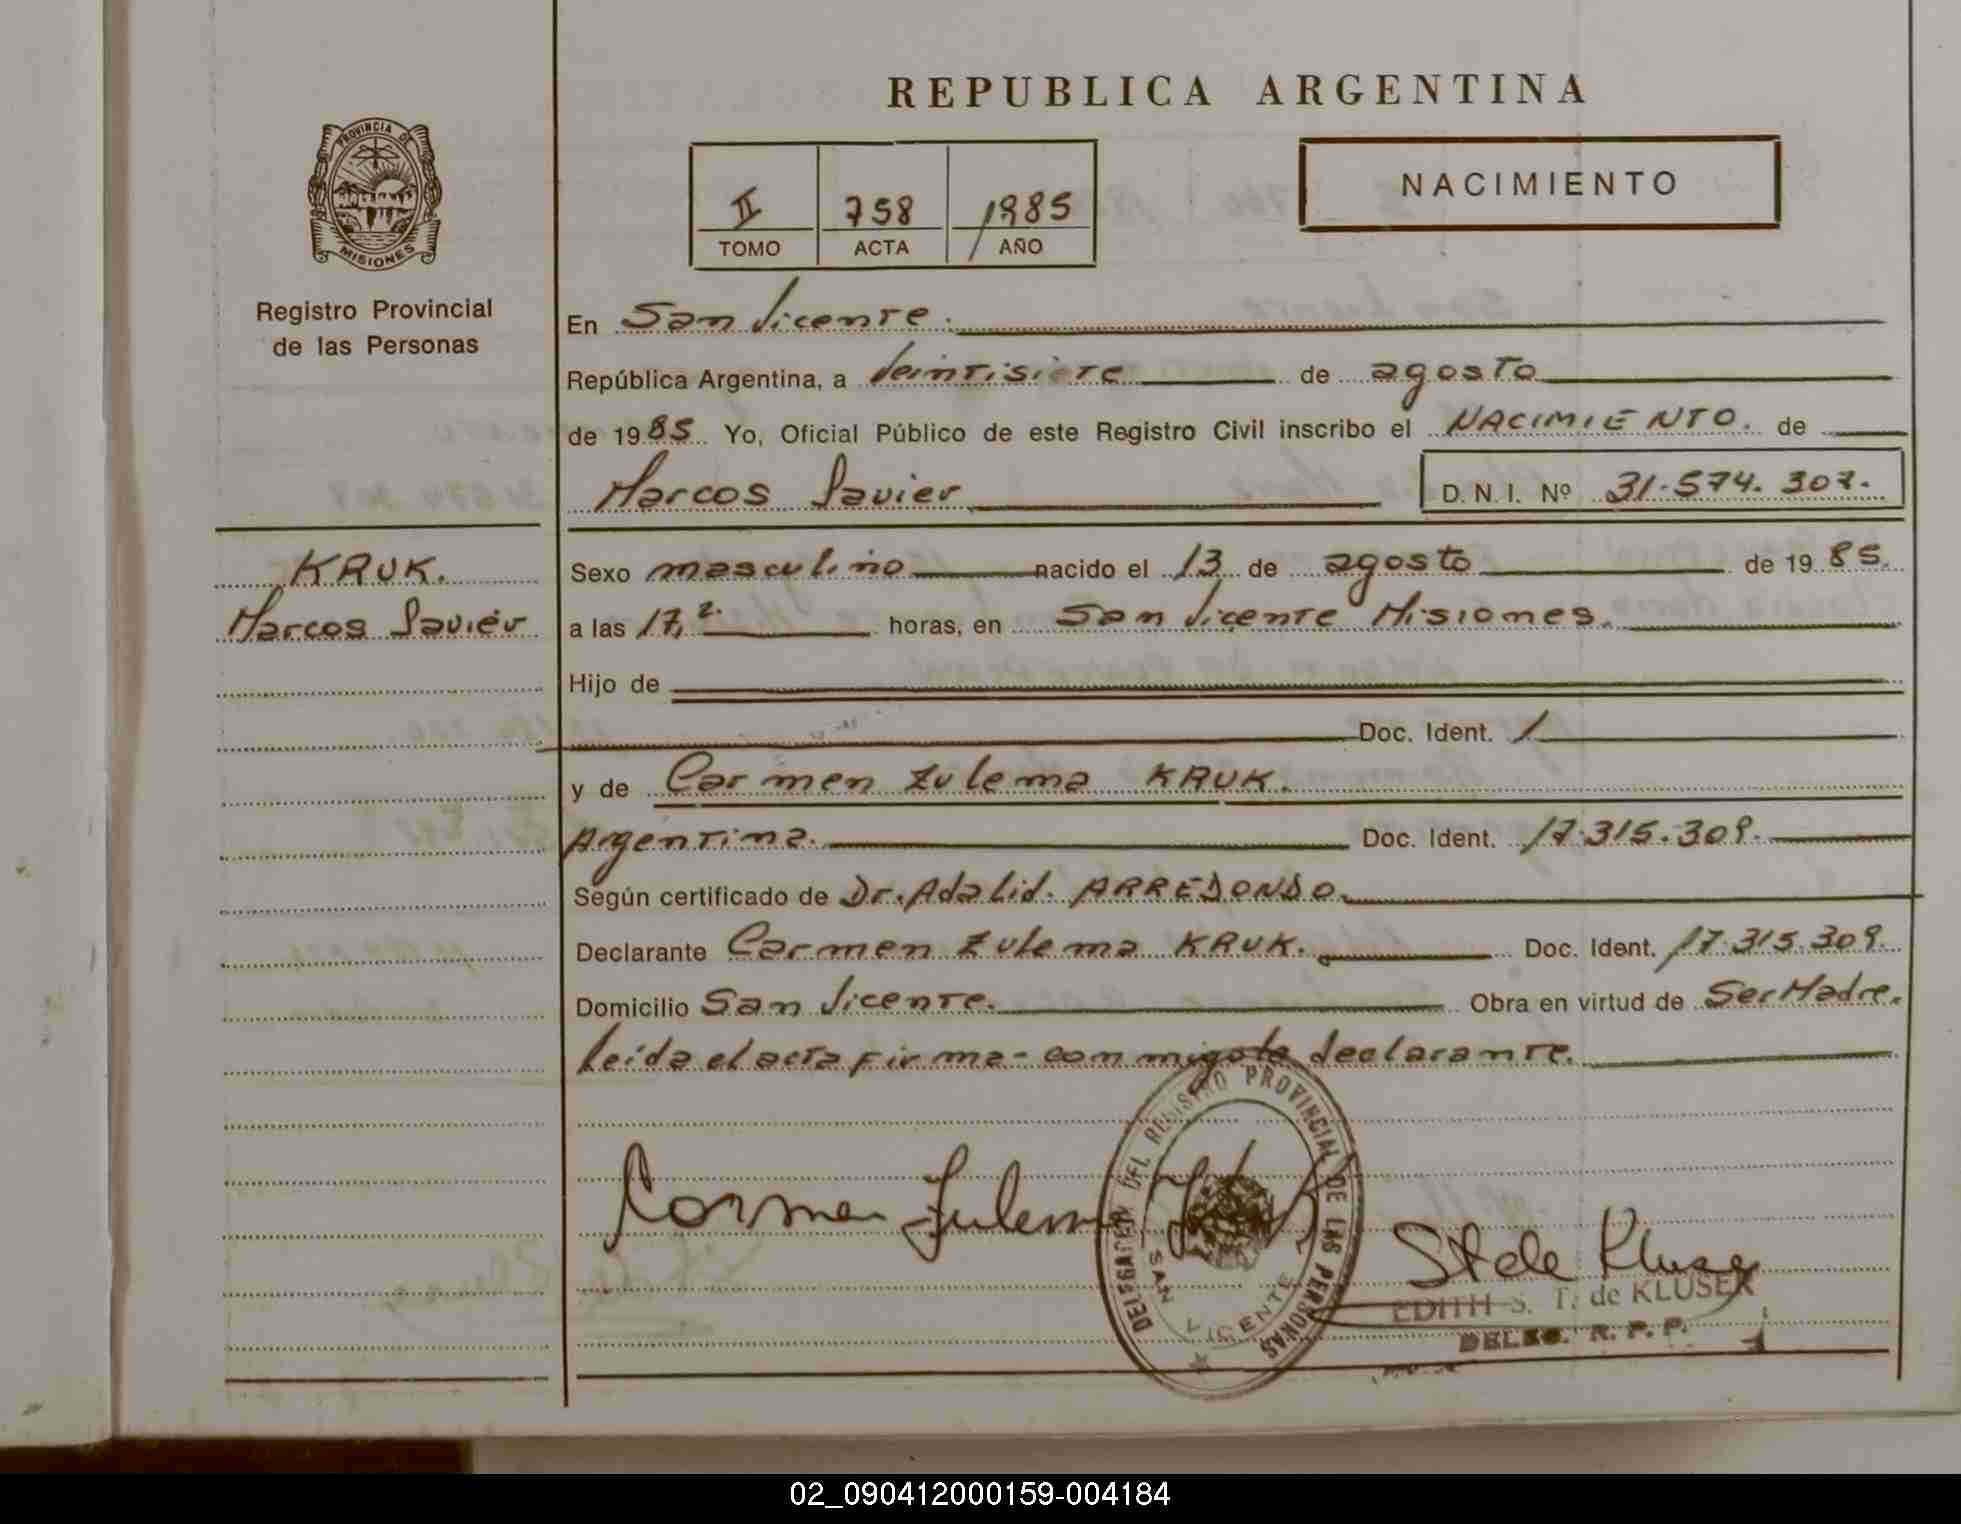 REPUBLICA ARGENTINA
PROVINCIA DE
MISIONES
Registro Provincial
de las Personas
II 758 1985
TOMO ACTA AÑO
NACIMIENTO
En San Vicente.
República Argentina, a Veintisiete de agosto
de 1985 Yo, Oficial Público de este Registro Civil inscribo el NACIMIENTO. de
Marcos Javier D. N. I. Nº 31.574.307.
KRUK.
Marcos Javier
Sexo masculino nacido el 13 de agosto de 1985.
a las 17,2. horas, en San Vicente Misiones.
Hijo de
Doc. Ident. /
y de Carmen Zulema KRUK.
Argentina. Doc. Ident. 17.315.309.
Según certificado de Dr. Adalid. ARREDONDO.
Declarante Carmen Zulema KRUK. Doc. Ident. 17.315.309.
Domicilio San Vicente. Obra en virtud de Ser Madre.
leída el acta firma- con migo la declarante.
Carmen Zulema
DELEGACION DEL REGISTRO PROVINCIAL DE LAS PERSONAS
SAN VICENTE
St de Kluser
EDITH S. T. de KLUSER
DELEG. R. P. P.
02_090412000159-004184